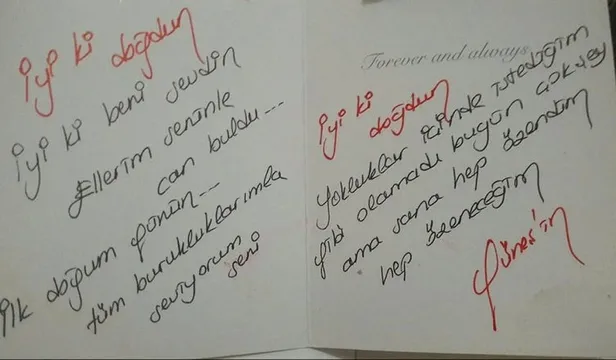 İyi ki doğdun
İyi ki beni sevdin
Ellerim seninle
can buldu...
İlk doğum günün...
tüm burukluklarımla
seviyorum
seni
Forever and always
İyi ki
doğdun
Yokluklar içinde istediğim
gibi olamadı bugün çok şey
ama sana hep özendim
hep özeneceğim
Güneş'in